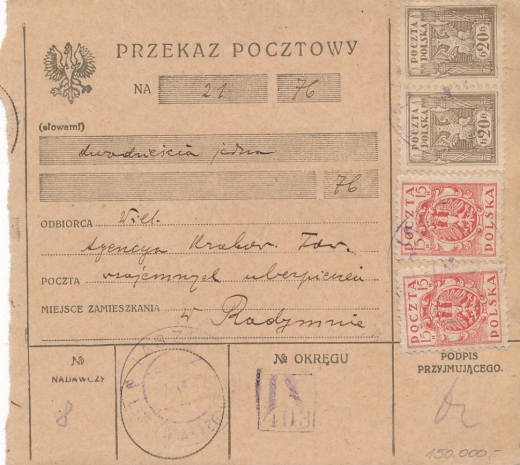 PRZEKAZ POCZTOWY
NA 21 76
(słowami)
dwadzieścia jedna
76
ODBIORCA Wiel.
Agencya Krakow. Tow.
POCZTA wzajemnych ubezpieczeń
MIEJSCE ZAMIESZKANIA w Radymnie
POCZTA POLSKA
20
POCZTA POLSKA
20
POCZTA POLSKA
15
POCZTA POLSKA
15
№ NADAWCZY
8
№ OKRĘGU
IX
403
PODPIS PRZYJMUJĄCEGO.
150.000,-